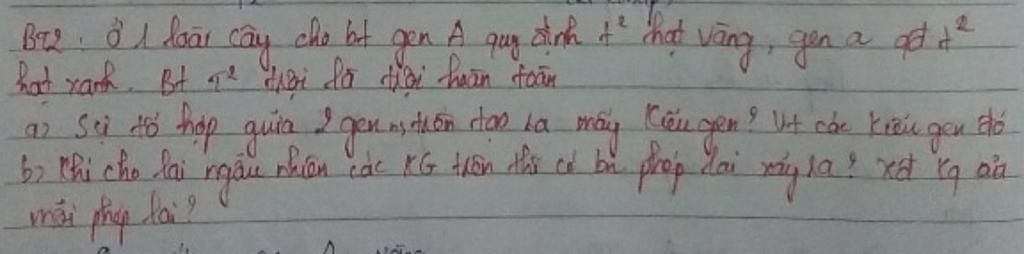 BT2: Ở 1 loài cây cho bt gen A quy định t² hạt vàng, gen a qđ t²
hạt xanh. Bt t² trội là trội hoàn toàn
a) Sự tổ hợp giữa 2 gen ns trên tạo ra mấy kiểu gen? Vt các kiểu gen đó
b) Khi cho lai ngẫu nhiên các KG trên thì có bn phép lai xảy ra? xđ kq của
mỗi phép lai?